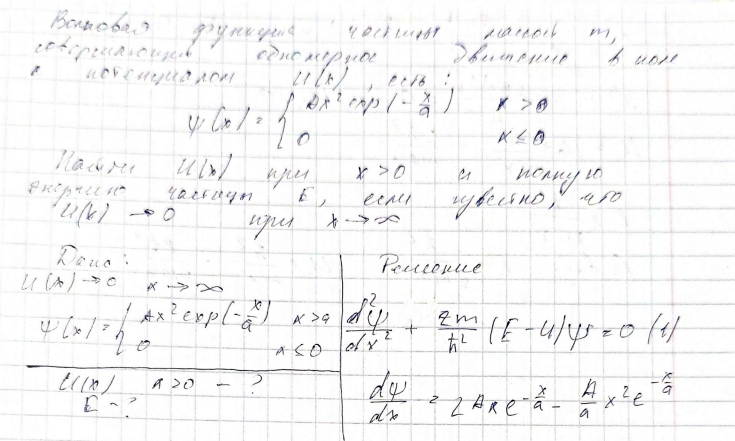 Волновая функция частицы массой m,
совершающей одномерное движение в поле
с потенциалом U(x), есть:
ψ(x) = { Ax² exp(-x/a) x > 0
0 x ≤ 0
Найти U(x) при x > 0 и полную
энергию частицы E, если известно, что
U(x) → 0 при x → ∞
Дано:
U(x) → 0 x → ∞
ψ(x) = { Ax² exp(-x/a) x > a
0 x ≤ 0
U(x) x > 0 - ?
E - ?
Решение
d²ψ/dx² + 2m/ħ² (E - U)ψ = 0 (1)
dψ/dx = 2Axe^{-x/a} - A/a x² e^{-x/a}